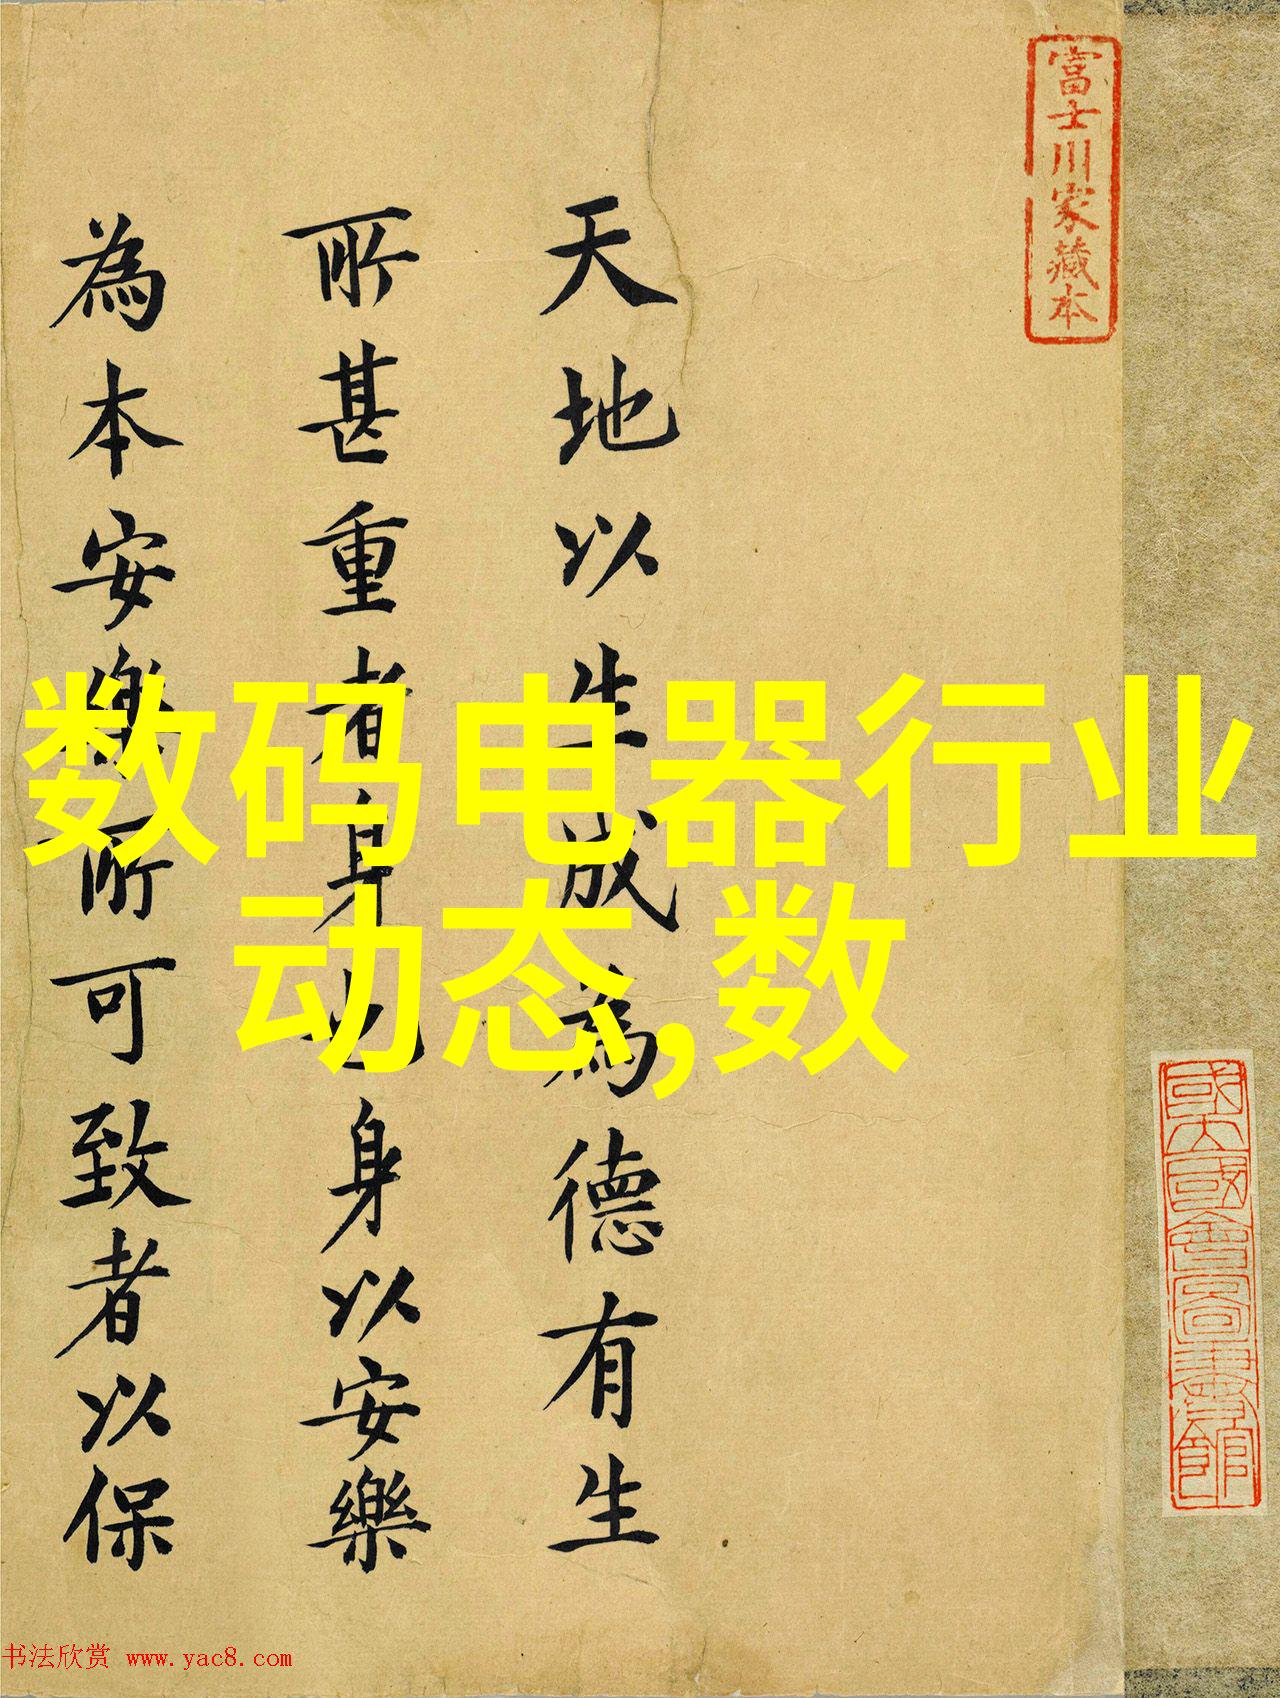 富士川家藏本
天地以生成為德有生
所甚重者身也身以安樂
為本安樂所可致者以保
数码电器行业
动态,数
书法欣赏 www.yac8.com